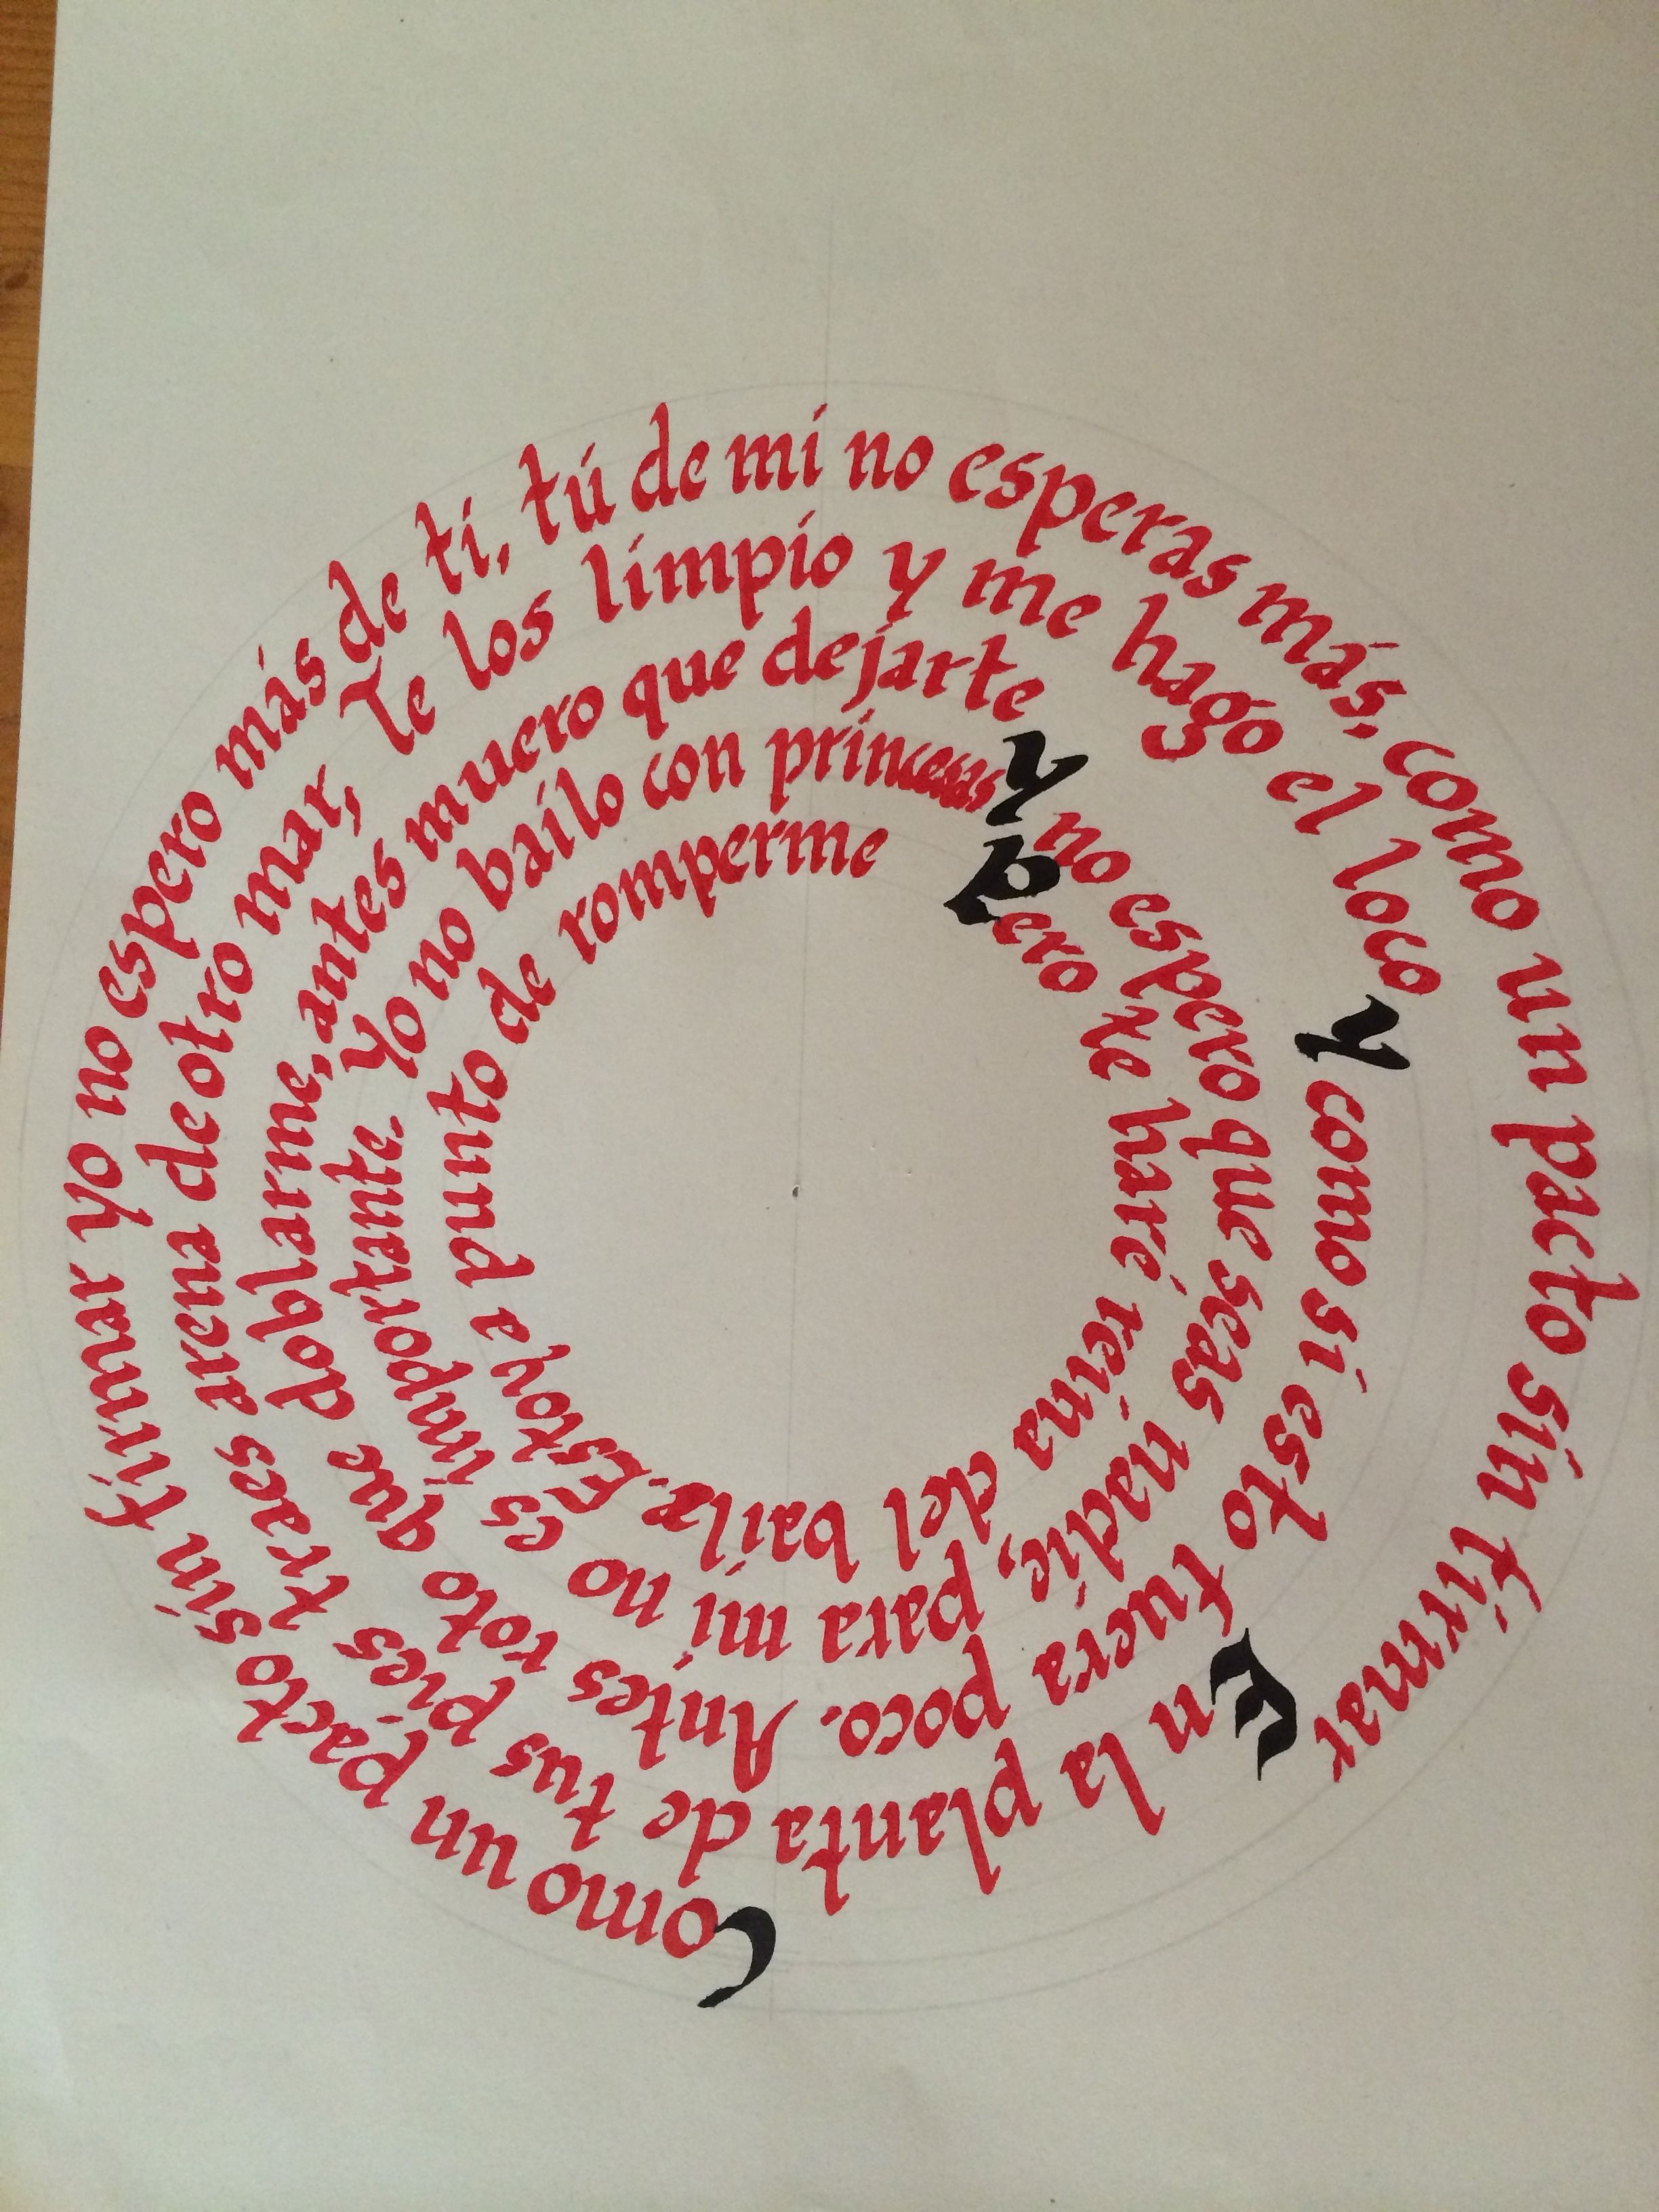 Como un pacto sin firmar yo no espero más de ti, tú de mi no esperas más, como un pacto sin firmar
En la planta de tus pies traes arena de otro mar, Te los limpio y me hago el loco
Y como si esto fuera poco. Antes roto que doblarme, antes muero que dejarte
Y no espero que seas nadie, para mi no es importante. Yo no bailo con princesas
Pero te haré reina del baile. Estoy a punto de romperme